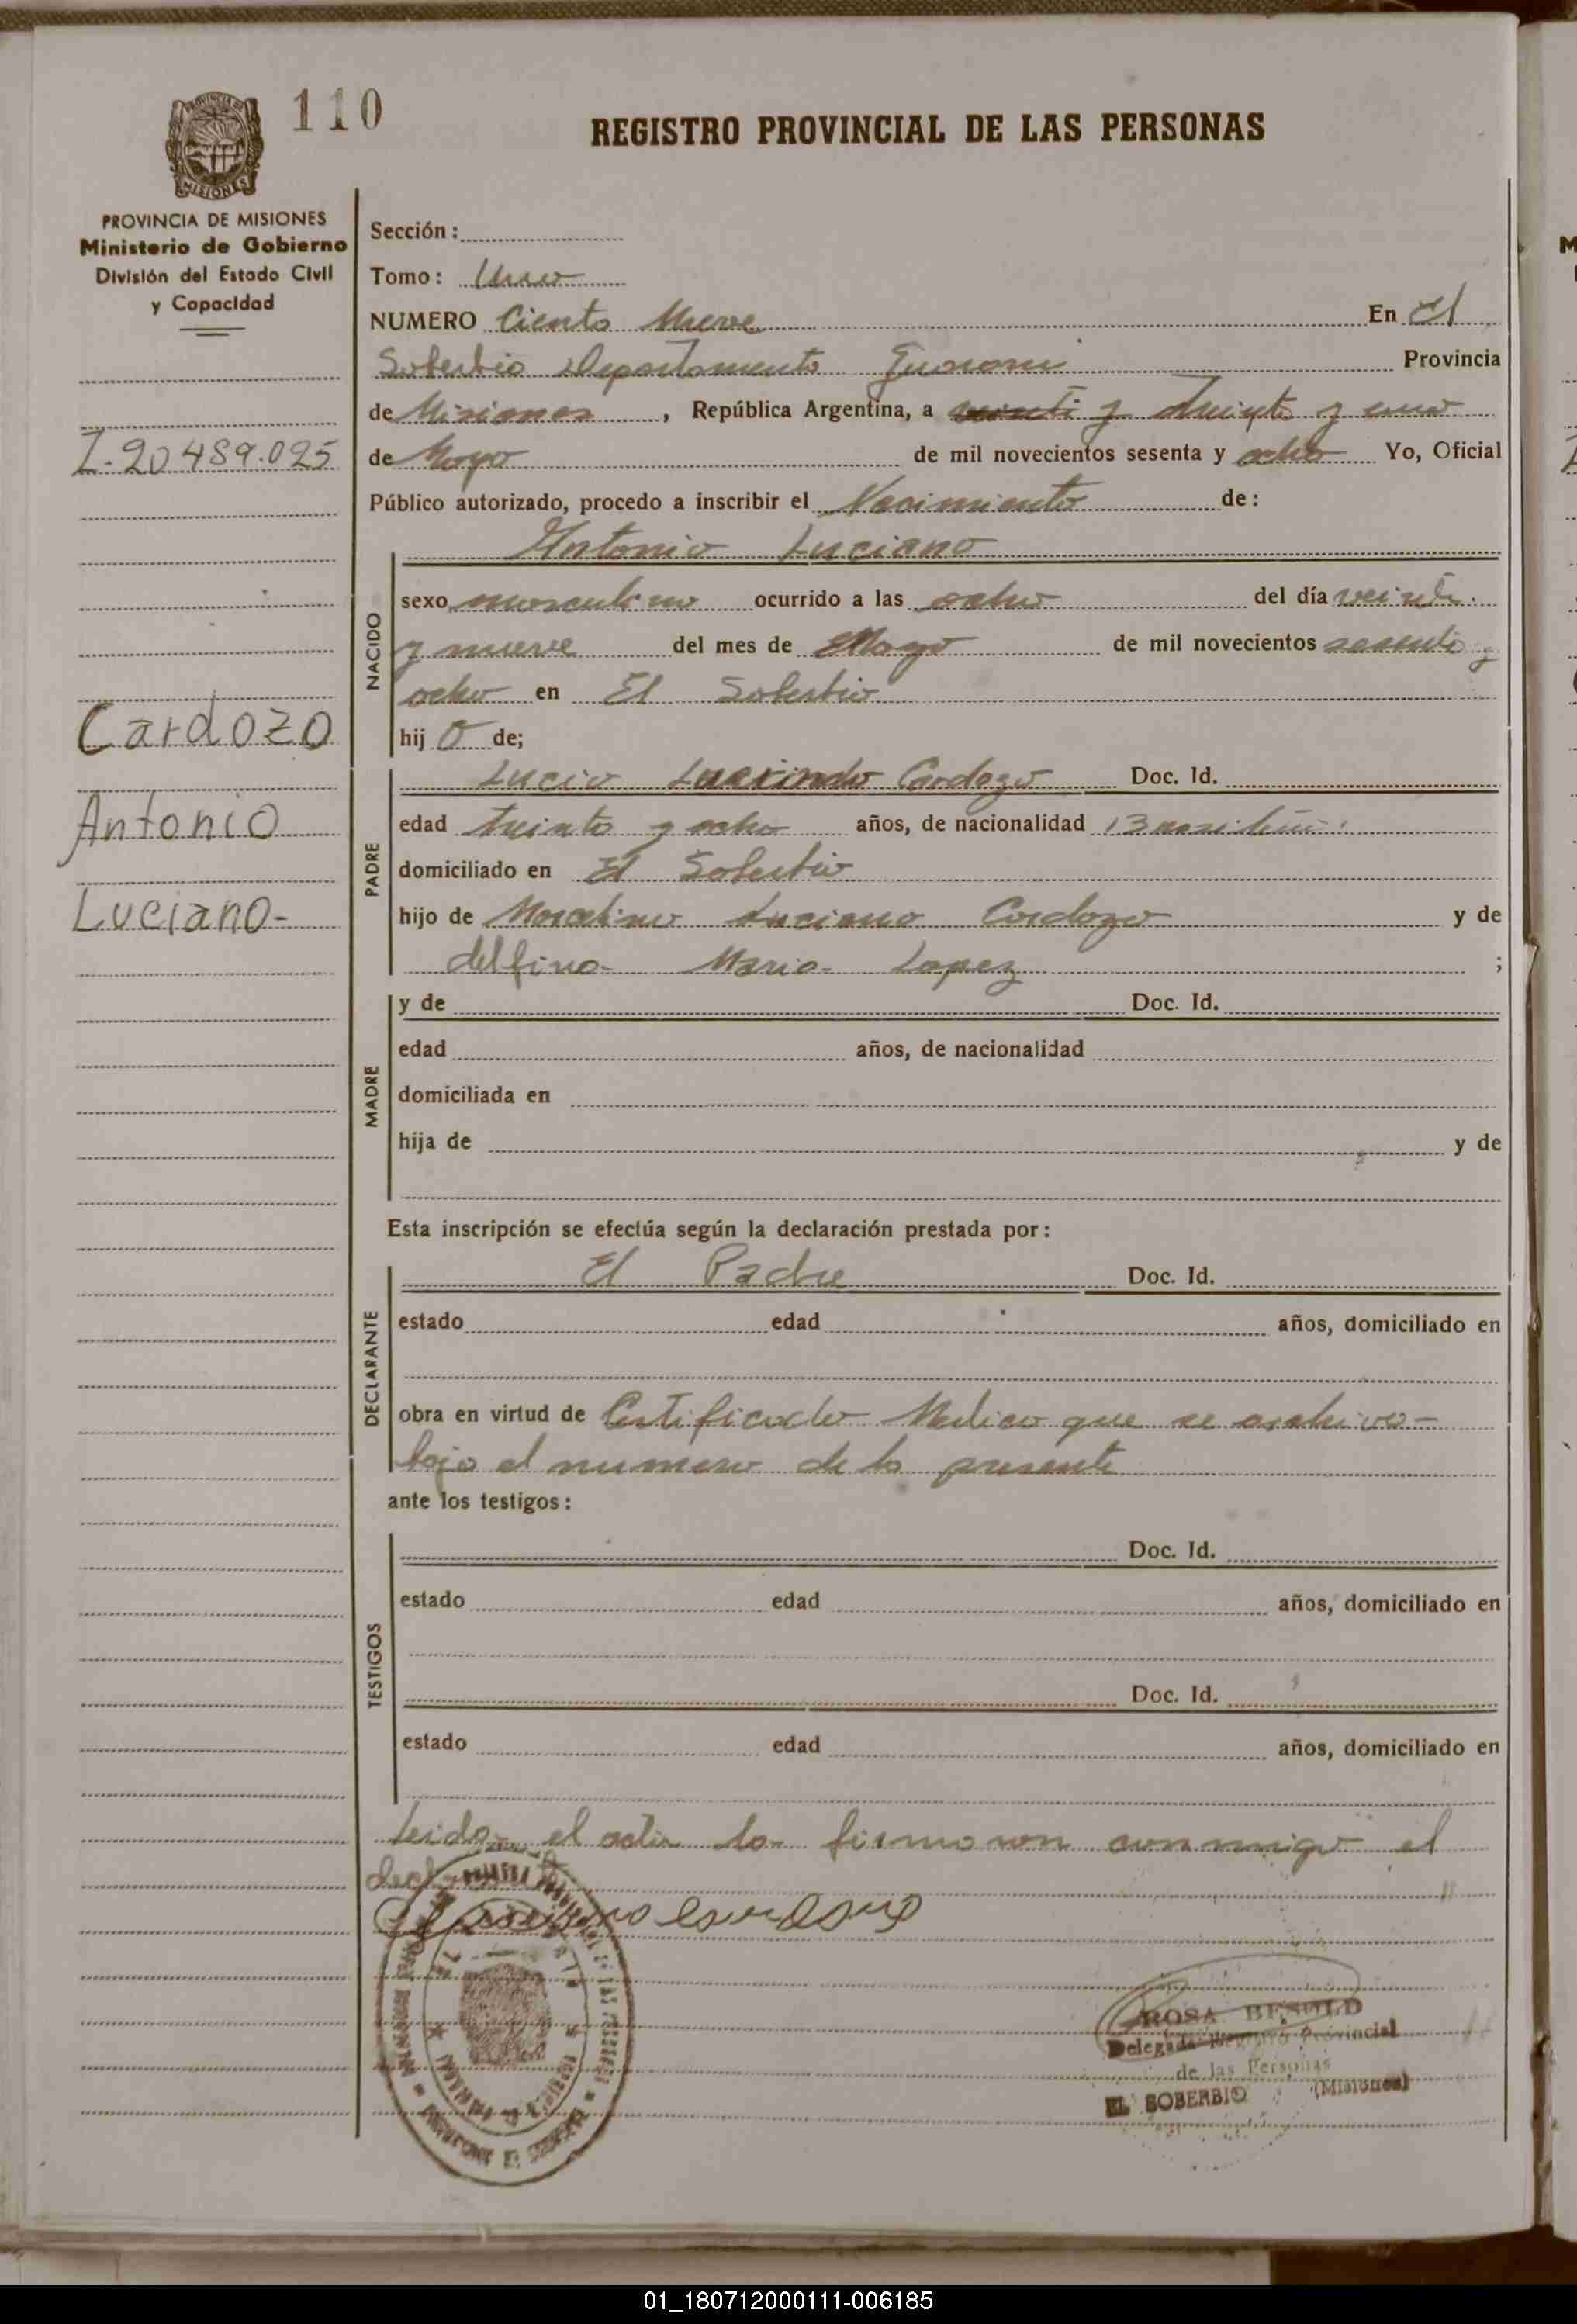 110
REGISTRO PROVINCIAL DE LAS PERSONAS
MISIONES
PROVINCIA DE MISIONES
Ministerio de Gobierno
División del Estado Civil
y Capacidad
I.20489.025
Cardozo
Antonio
Luciano-
Sección:
Tomo: Uno
NUMERO Ciento Nueve En El
Soberbio Departamento Guarani Provincia
de Misiones, República Argentina, a veinti y Treinta y uno
de Mayo de mil novecientos sesenta y ocho Yo, Oficial
Público autorizado, procedo a inscribir el Nacimiento de:
Antonio Luciano
NACIDO
sexo masculino ocurrido a las ocho del día veinti
y nueve del mes de Mayo de mil novecientos sesenta y
ocho en El Soberbio
hij o de;
PADRE
Lucio Cardozo Doc. Id.
edad treinta y ocho años, de nacionalidad Brasileña
domiciliado en El Soberbio
hijo de Marcelino Luciano Cardozo y de
delfina Maria Lopez ;
MADRE
y de Doc. Id.
edad años, de nacionalidad
domiciliada en
hija de y de
Esta inscripción se efectúa según la declaración prestada por:
DECLARANTE
El Padre Doc. Id.
estado edad años, domiciliado en
obra en virtud de Certificado Medico que se archiva
bajo el numero de la presente
ante los testigos:
TESTIGOS
Doc. Id.
estado edad años, domiciliado en
Doc. Id.
estado edad años, domiciliado en
Leida el acta la firmaron conmigo el
ROSA BESOLD
Delegada Registro Provincial
de las Personas
EL SOBERBIO (Misiones)
01_180712000111-006185